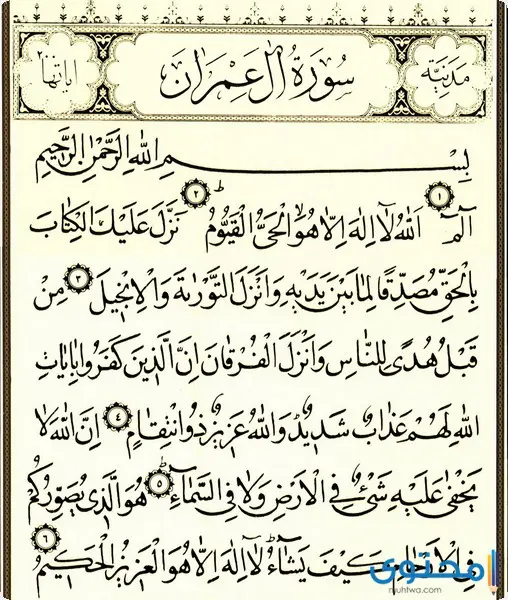 مدنية سورة آل عمران اياتها ٢٠٠
بِسْمِ اللّٰهِ الرَّحْمٰنِ الرَّحٖيمِ
الٓمٓ ١ اَللّٰهُ لَٓا اِلٰهَ اِلَّا هُوَ الْحَيُّ الْقَيُّومُ ٢ نَزَّلَ عَلَيْكَ الْكِتَابَ
بِالْحَقِّ مُصَدِّقًا لِمَا بَيْنَ يَدَيْهِ وَاَنْزَلَ التَّوْرٰيةَ وَالْاِنْجٖيلَ ٣ مِنْ
قَبْلُ هُدًى لِلنَّاسِ وَاَنْزَلَ الْفُرْقَانَ اِنَّ الَّذٖينَ كَفَرُوا بِاٰيَاتِ
اللّٰهِ لَهُمْ عَذَابٌ شَدٖيدٌ وَاللّٰهُ عَزٖيزٌ ذُو انْتِقَامٍ ٤ اِنَّ اللّٰهَ لَا
يَخْفٰى عَلَيْهِ شَيْءٌ فِي الْاَرْضِ وَلَا فِي السَّمَٓاءِ ٥ هُوَ الَّذٖي يُصَوِّرُكُمْ
فِي الْاَرْحَامِ كَيْفَ يَشَٓاءُ لَٓا اِلٰهَ اِلَّا هُوَ الْعَزٖيزُ الْحَكٖيمُ ٦
محتوى
muhtwa.com